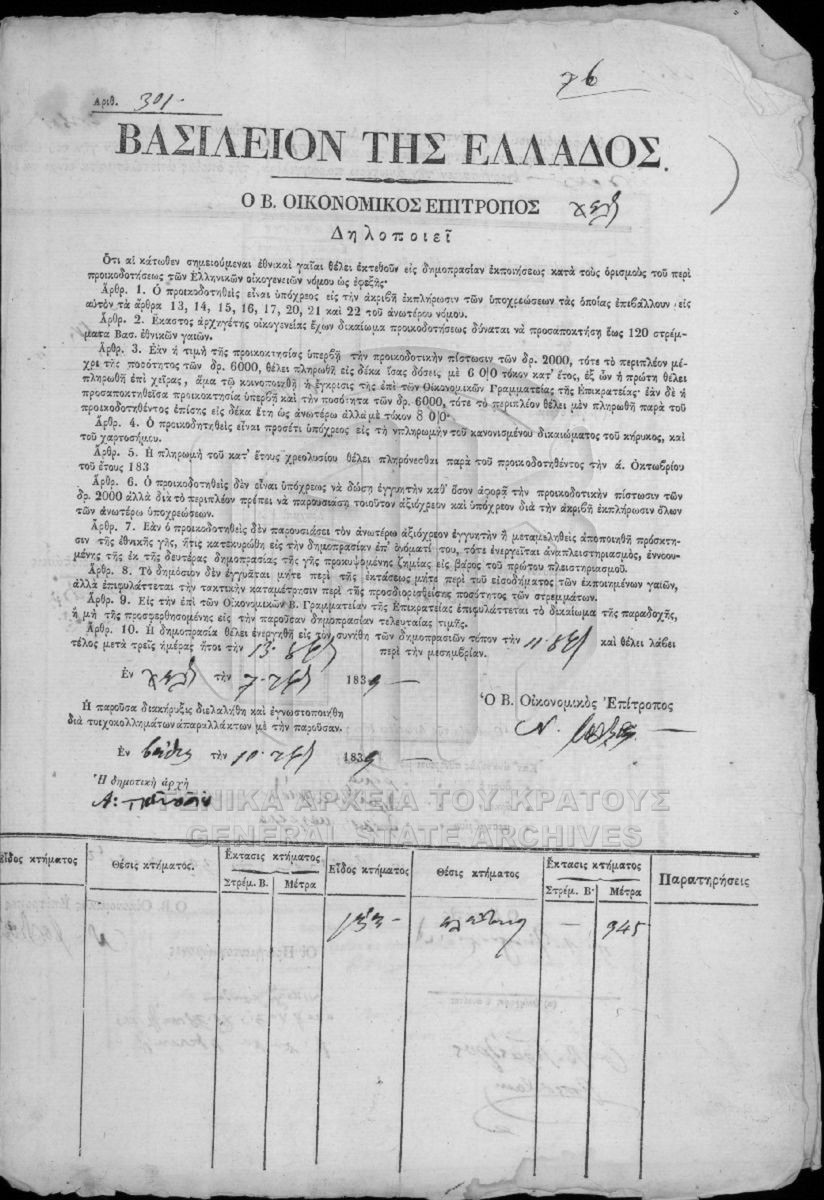 76
Αριθ. 301.
ΒΑΣΙΛΕΙΟΝ ΤΗΣ ΕΛΛΑΔΟΣ.
Ο Β. ΟΙΚΟΝΟΜΙΚΟΣ ΕΠΙΤΡΟΠΟΣ
Δηλοποιεῖ
Ὅτι αἱ κάτωθεν σημειούμεναι ἐθνικαὶ γαῖαι θέλει ἐκτεθοῦν εἰς δημοπρασίαν ἐκποιήσεως κατὰ τοὺς ὁρισμοὺς τοῦ περὶ
προικοδοτήσεως τῶν Ἑλληνικῶν οἰκογενειῶν νόμου ὡς ἐφεξῆς·
Ἄρθρ. 1. Ὁ προικοδοτηθεὶς εἶναι ὑπόχρεος εἰς τὴν ἀκριβῆ ἐκπλήρωσιν τῶν ὑποχρεώσεων τὰς ὁποίας ἐπιβάλλουν εἰς
αὐτὸν τὰ ἄρθρα 13, 14, 15, 16, 17, 20, 21 καὶ 22 τοῦ ἀνωτέρω νόμου.
Ἄρθρ. 2. Ἕκαστος ἀρχηγέτης οἰκογενείας ἔχων δικαίωμα προικοδοτήσεως δύναται νὰ προσαποκτήσῃ ἕως 120 στρέμ-
ματα Βασ. ἐθνικῶν γαιῶν.
Ἄρθρ. 3. Ἐὰν ἡ τιμὴ τῆς προικοκτησίας ὑπερβῇ τὴν προικοδοτικὴν πίστωσιν τῶν δρ. 2000, τότε τὸ περιπλέον μέ-
χρι τῆς ποσότητος τῶν δρ. 6000, θέλει πληρωθῆ εἰς δέκα ἴσας δόσεις, μὲ 6 0|0 τόκον κατ' ἔτος, ἐξ ὧν ἡ πρώτη θέλει
πληρωθῆ ἐπὶ χεῖρας, ἅμα τῷ κοινοποιηθῇ ἡ ἔγκρισις τῆς ἐπὶ τῶν Οἰκονομικῶν Γραμματείας τῆς Ἐπικρατείας· ἐὰν δὲ ἡ
προσαποκτηθεῖσα προικοκτησία ὑπερβῇ καὶ τὴν ποσότητα τῶν δρ. 6000, τότε τὸ περιπλέον θέλει μὲν πληρωθῆ παρὰ τοῦ
προικοδοτηθέντος ἐπίσης εἰς δέκα ἔτη ὡς ἀνωτέρω ἀλλὰ μὲ τόκον 8 0|0·
Ἄρθρ. 4. Ὁ προικοδητηθεὶς εἶναι προσέτι ὑπόχρεος εἰς τὴ νπληρωμὴν τοῦ κανονισμένου δικαιώματος τοῦ κήρυκος, καὶ
τοῦ χαρτοσήμου.
Ἄρθρ. 5. Ἡ πληρωμὴ τοῦ κατ' ἔτους χρεολυσίου θέλει πληρόνεσθαι παρὰ τοῦ προικοδοτηθέντος τὴν ά. Ὀκτωβρίου
τοῦ ἔτους 183
Ἄρθρ. 6. Ὁ προικοδοτηθεὶς δὲν εἶναι ὑπόχρεως νὰ δώσῃ ἐγγυητὴν καθ' ὅσον ἀφορᾷ τὴν προικοδοτικὴν πίστωσιν τῶν
δρ. 2000 ἀλλὰ διὰ τὸ περιπλέον πρέπει νὰ παρουσιάσῃ τοιοῦτον ἀξιόχρεον καὶ ὑπόχρεον διὰ τὴν ἀκριβῆ ἐκπλήρωσιν ὅλων
τῶν ἀνωτέρω ὑποχρεώσεων.
Ἄρθρ. 7. Ἐὰν ὁ προικοδοτηθεὶς δὲν παρουσιάσει τὸν ἀνωτέρω ἀξιόχρεον ἐγγυητὴν ἢ μεταμεληθεὶς ἀποποιηθῇ πρόσκτη-
σιν τῆς ἐθνικῆς γῆς, ἥτις κατεκυρώθη εἰς τὴν δημοπρασίαν ἐπ' ὀνόματί του, τότε ἐνεργεῖται ἀναπλειστηριασμὸς, ἐννοου-
μένης τῆς ἐκ τῆς δευτέρας δημοπρασίας τῆς γῆς προκυψομένης ζημίας εἰς βάρος τοῦ πρώτου πλειστηριασμοῦ.
Ἄρθρ. 8. Τὸ δημόσιον δὲν ἐγγυᾶται μήτε περὶ τῆς ἐκτάσεως μήτε περὶ τοῦ εἰσοδήματος τῶν ἐκποιημένων γαιῶν,
ἀλλὰ ἐπιφυλάττεται τὴν τακτικὴν καταμέτρησιν περὶ τῆς προσδιορισθείσης ποσότητος τῶν στρεμμάτων.
Ἄρθρ. 9. Εἰς τὴν ἐπὶ τῶν Οἰκονομικῶν Β. Γραμματείαν τῆς Ἐπικρατείας ἐπιφυλάττεται τὸ δικαίωμα τῆς παραδοχῆς,
ἢ μὴ τῆς προσφερθησομένης εἰς τὴν παροῦσαν δημοπρασίαν τελευταίας τιμῆς.
Ἄρθρ. 10. Ἡ δημοπρασία θέλει ἐνεργηθῆ εἰς τὸν συνήθη τῶν δημοπρασιῶν τόπον τὴν 11 καὶ θέλει λάβει
τέλος μετὰ τρεῖς ἡμέρας ἤτοι τὴν 13 περὶ τὴν μεσημβρίαν.
Ἐν τὴν 7 1839
Ὁ Β. Οἰκονομικὸς Ἐπίτροπος
Ν.
Ἡ παροῦσα διακήρυξις διελαλήθη καὶ ἐγνωστοποιήθη
διὰ τοιχοκολλημάτων ἀπαραλλάκτων μὲ τὴν παροῦσαν.
Ἐν τὴν 10 1839
Ἡ δημοτικὴ ἀρχὴ
Α:
ΓΕΝΙΚΑ ΑΡΧΕΙΑ ΤΟΥ ΚΡΑΤΟΥΣ
GENERAL STATE ARCHIVES
Εἶδος κτήματος Θέσις κτήματος. Ἔκτασις κτήματος Εἶδος κτήματος Θέσις κτήματος Ἔκτασις κτήματος Παρατηρήσεις
Στρέμ. Β. Μέτρα Στρέμ. Β· Μέτρα
— 945